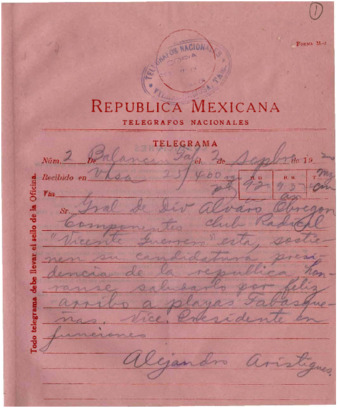 1
FORMA 75-A
TELEGRAFOS NACIONALES
REPUBLICA MEXICANA
TELEGRAFOS NACIONALES
TELEGRAMA
Núm. 2 De Balancan Tab el 2 de Sepbre 19
Recibido en Vsa 25/400
Vía
Sr Gral de Div Alvaro Obregon
Componentes club Radical
"Vicente Guerrero" esta, sostie-
nen su candidatura presi-
dencia de la republica, hon-
ranse saludarlo por feliz
arribo a playas Tabasque-
ñas. Vice. Presidente en
funciones
Alejandro Aristigues.
Todo telegrama debe llevar el sello de la Oficina.